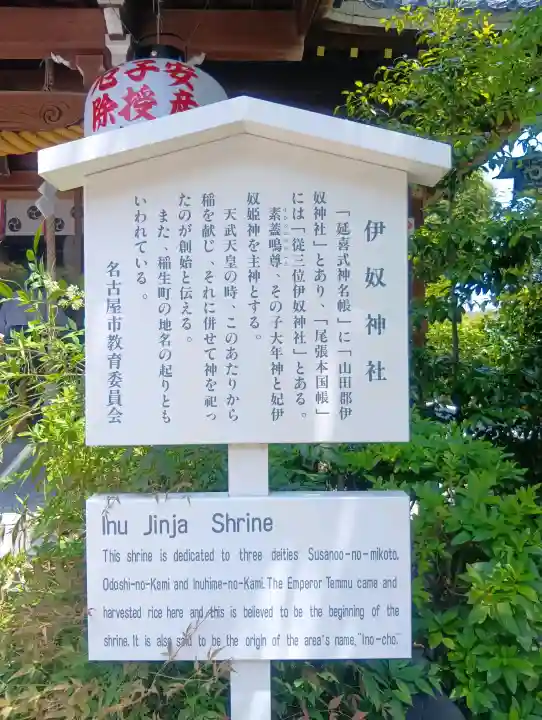 安産
子授
厄除
伊奴神社
「延喜式神名帳」に「山田郡伊
奴神社」とあり、「尾張本国帳」
には「従三位伊奴神社」とある。
素盞嗚尊、その子大年神と妃伊
奴姫神を主神とする。
天武天皇の時、このあたりから
稲を献じ、それに併せて神を祀っ
たのが創始と伝える。
また、稲生町の地名の起りとも
いわれている。
名古屋市教育委員会
Inu Jinja Shrine
This shrine is dedicated to three deities Susanoo-no-mikoto,
Odoshi-no-Kami and Inuhime-no-Kami. The Emperor Temmu came and
harvested rice here and this is believed to be the beginning of the
shrine. It is also said to be the origin of the area's name, "Ino-cho."